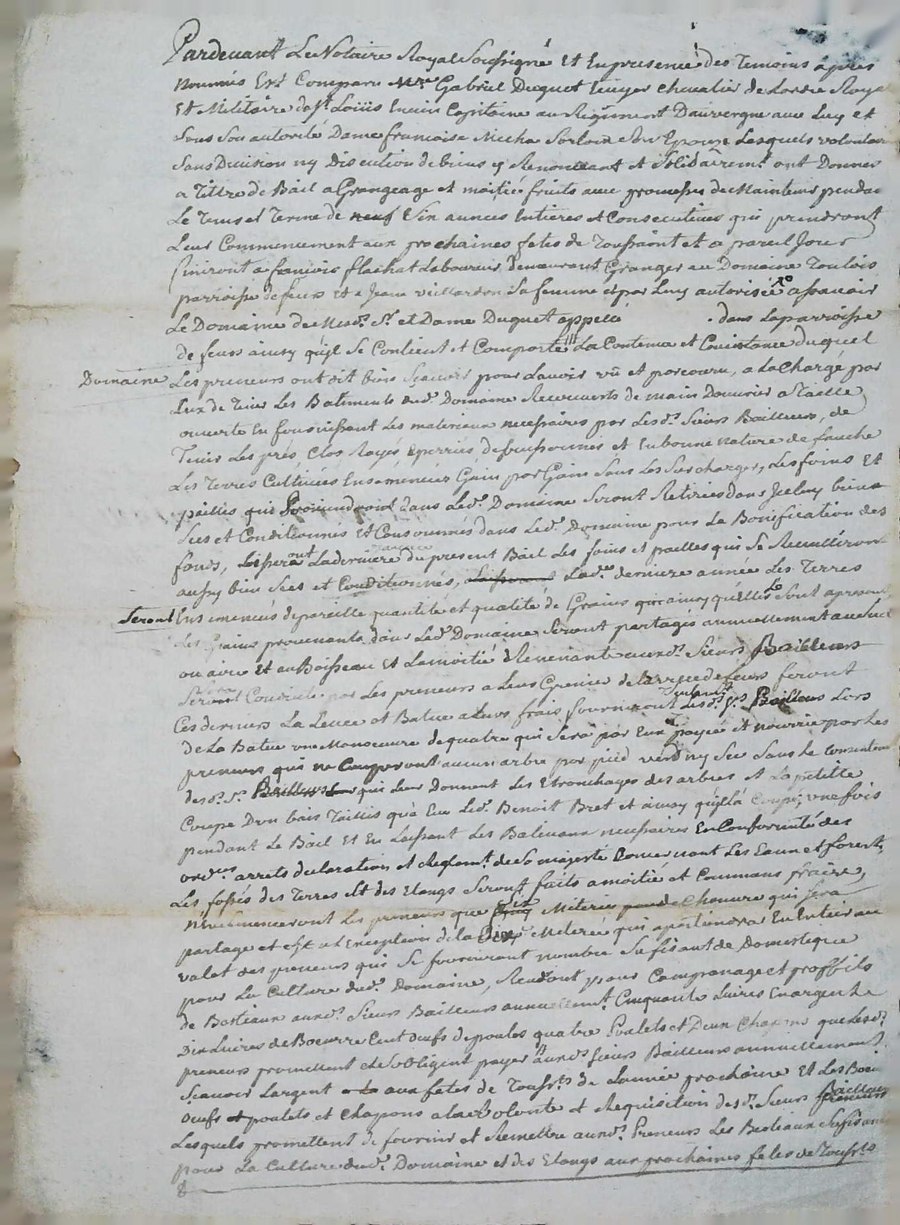 Pardevant Le Notaire Royal Soussigné Et En presence des Temoins apres
Nommés Est Comparu Mre Gabriel Duguet Ecuyer Chevalier de Lordre Royal
Et Militaire de St Loüis Encien Capitaine au Regiment Dauvergne avec Luy et
Sous Son autorité Dame francoise Son Epouze Lesquels volontairement
Sans Division ny Discution de biens y Renonceant et Solidairemt ont Donnés
a Tittre de Bail a Grangeage et moitié fruits avec promesse de Maintenir pendant
Le Tems et Terme de Six années Entieres et Consecutives qui prendront
Leur Commencement aux prochaines fetes de Toussaint et a pareil Jour
finiront a francois flachat Laboureur Demeurant Granger au Domaine
parroisse de feurs et a Jean sa femme et par Luy autorisée ascavoir
Le Domaine desd. Sr. et Dame Duguet appellé dans La parroisse
de feurs ainsy quil Se Contient et Comporte La Contenue et Consistance duquel
Domaine Les preneurs ont dit bien Scavoir pour Lavoir vû et parcouru, a La Charge par
Eux de Tenir Les Batiments dud. Domaine de main Douvrier a Taille
ouverte En fournissant Les materiaux necessaires par Lesd. Sieurs Bailleurs, de
Tenir Les prés Clos et En bonne Nature de fauche
Les Terres Cultivées Ensemencées Gain par Gain Sans Les Surcharger, Les foins Et
pailles qui dans Led. Domaine Seront Retirées dans Jceluy bien
Secs et Conditionnés Et Consommés dans Led. Domaine pour La Bonification des
fonds, La derniere du present Bail Les foins et pailles qui Se Recuilliront
aussy bien Secs et Conditionnés, Lad. derniere année Les Terres
Seront Ensemencés de pareille quantité et qualité de Grains ainsy quelles Sont apresent
Les Grains provenants dans Led. Domaine Seront partagés annuellement au Sul
ou aire Et au Boisseau Et La moitié Revenante auxd. Sieurs Bailleurs
Sera Conduite par Les preneurs a Leur Grenier de feurs feront
Ces derniers La Levée et Batue a Leurs frais fourniront Lesd. Srs Bailleurs Lors
de La Batue une Manoeuvre de quatre qui Sera par Eux payée et nourrie par Les
preneurs qui ne Couperont aucun arbre par pied verd ny Sec Sans Le Consentement
desd. Srs Bailleurs qui Leur Donnent Les Etronchages des arbres et La petitte
Coupe Dun bois Taillis que Led. Benoit Bret et ainsy quil La Coupé, une fois
pendant Le Bail Et En Laissant Les Baliveaux necessaires En Conformité des
ordces arrets declaration et Reglemt de Sa majesté Concernant Les Eaux et forests
Les fossés des Terres Et des Etangs Seront faits a moitié et Communs fraire,
N'Ensemenceront Les preneurs que Six Meterée de Chanvre qui Sera
partagé et a L'Exception de La Dixe Meterée qui apartiendra En Entier au
valet des preneurs qui Se fourniront nombre Sufisant de Domestique
pour La Culture dud. Domaine, Rendont pour Campanage et proffits
de Bestiaux auxd. Sieurs Bailleurs annuellemt Cinquante Livres En argent
Dix Livres de Boeurre Cent oeufs de poules quatre Poulets et Deux Chapons que Lesd.
preneurs promettent et S'obligent payer auxd. Sieurs Bailleurs annuellement
Scavoir Largent aux fetes de Toussts de Lannée prochaine Et Les Boeurre
Oeufs poulets et Chapons a La volonté et Requisition desd. Sieurs Bailleurs
Lesquels promettent de fournir et Remettre auxd. Preneurs Les Bestiaux Sufisants
pour La Culture dud. Domaine et des Etangs aux prochaines fetes de Toussts